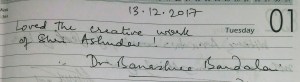 13.12.2017
01
Tuesday
Loved the creative work
of Shri Ashudev !
Dr Baneshree Bandalal